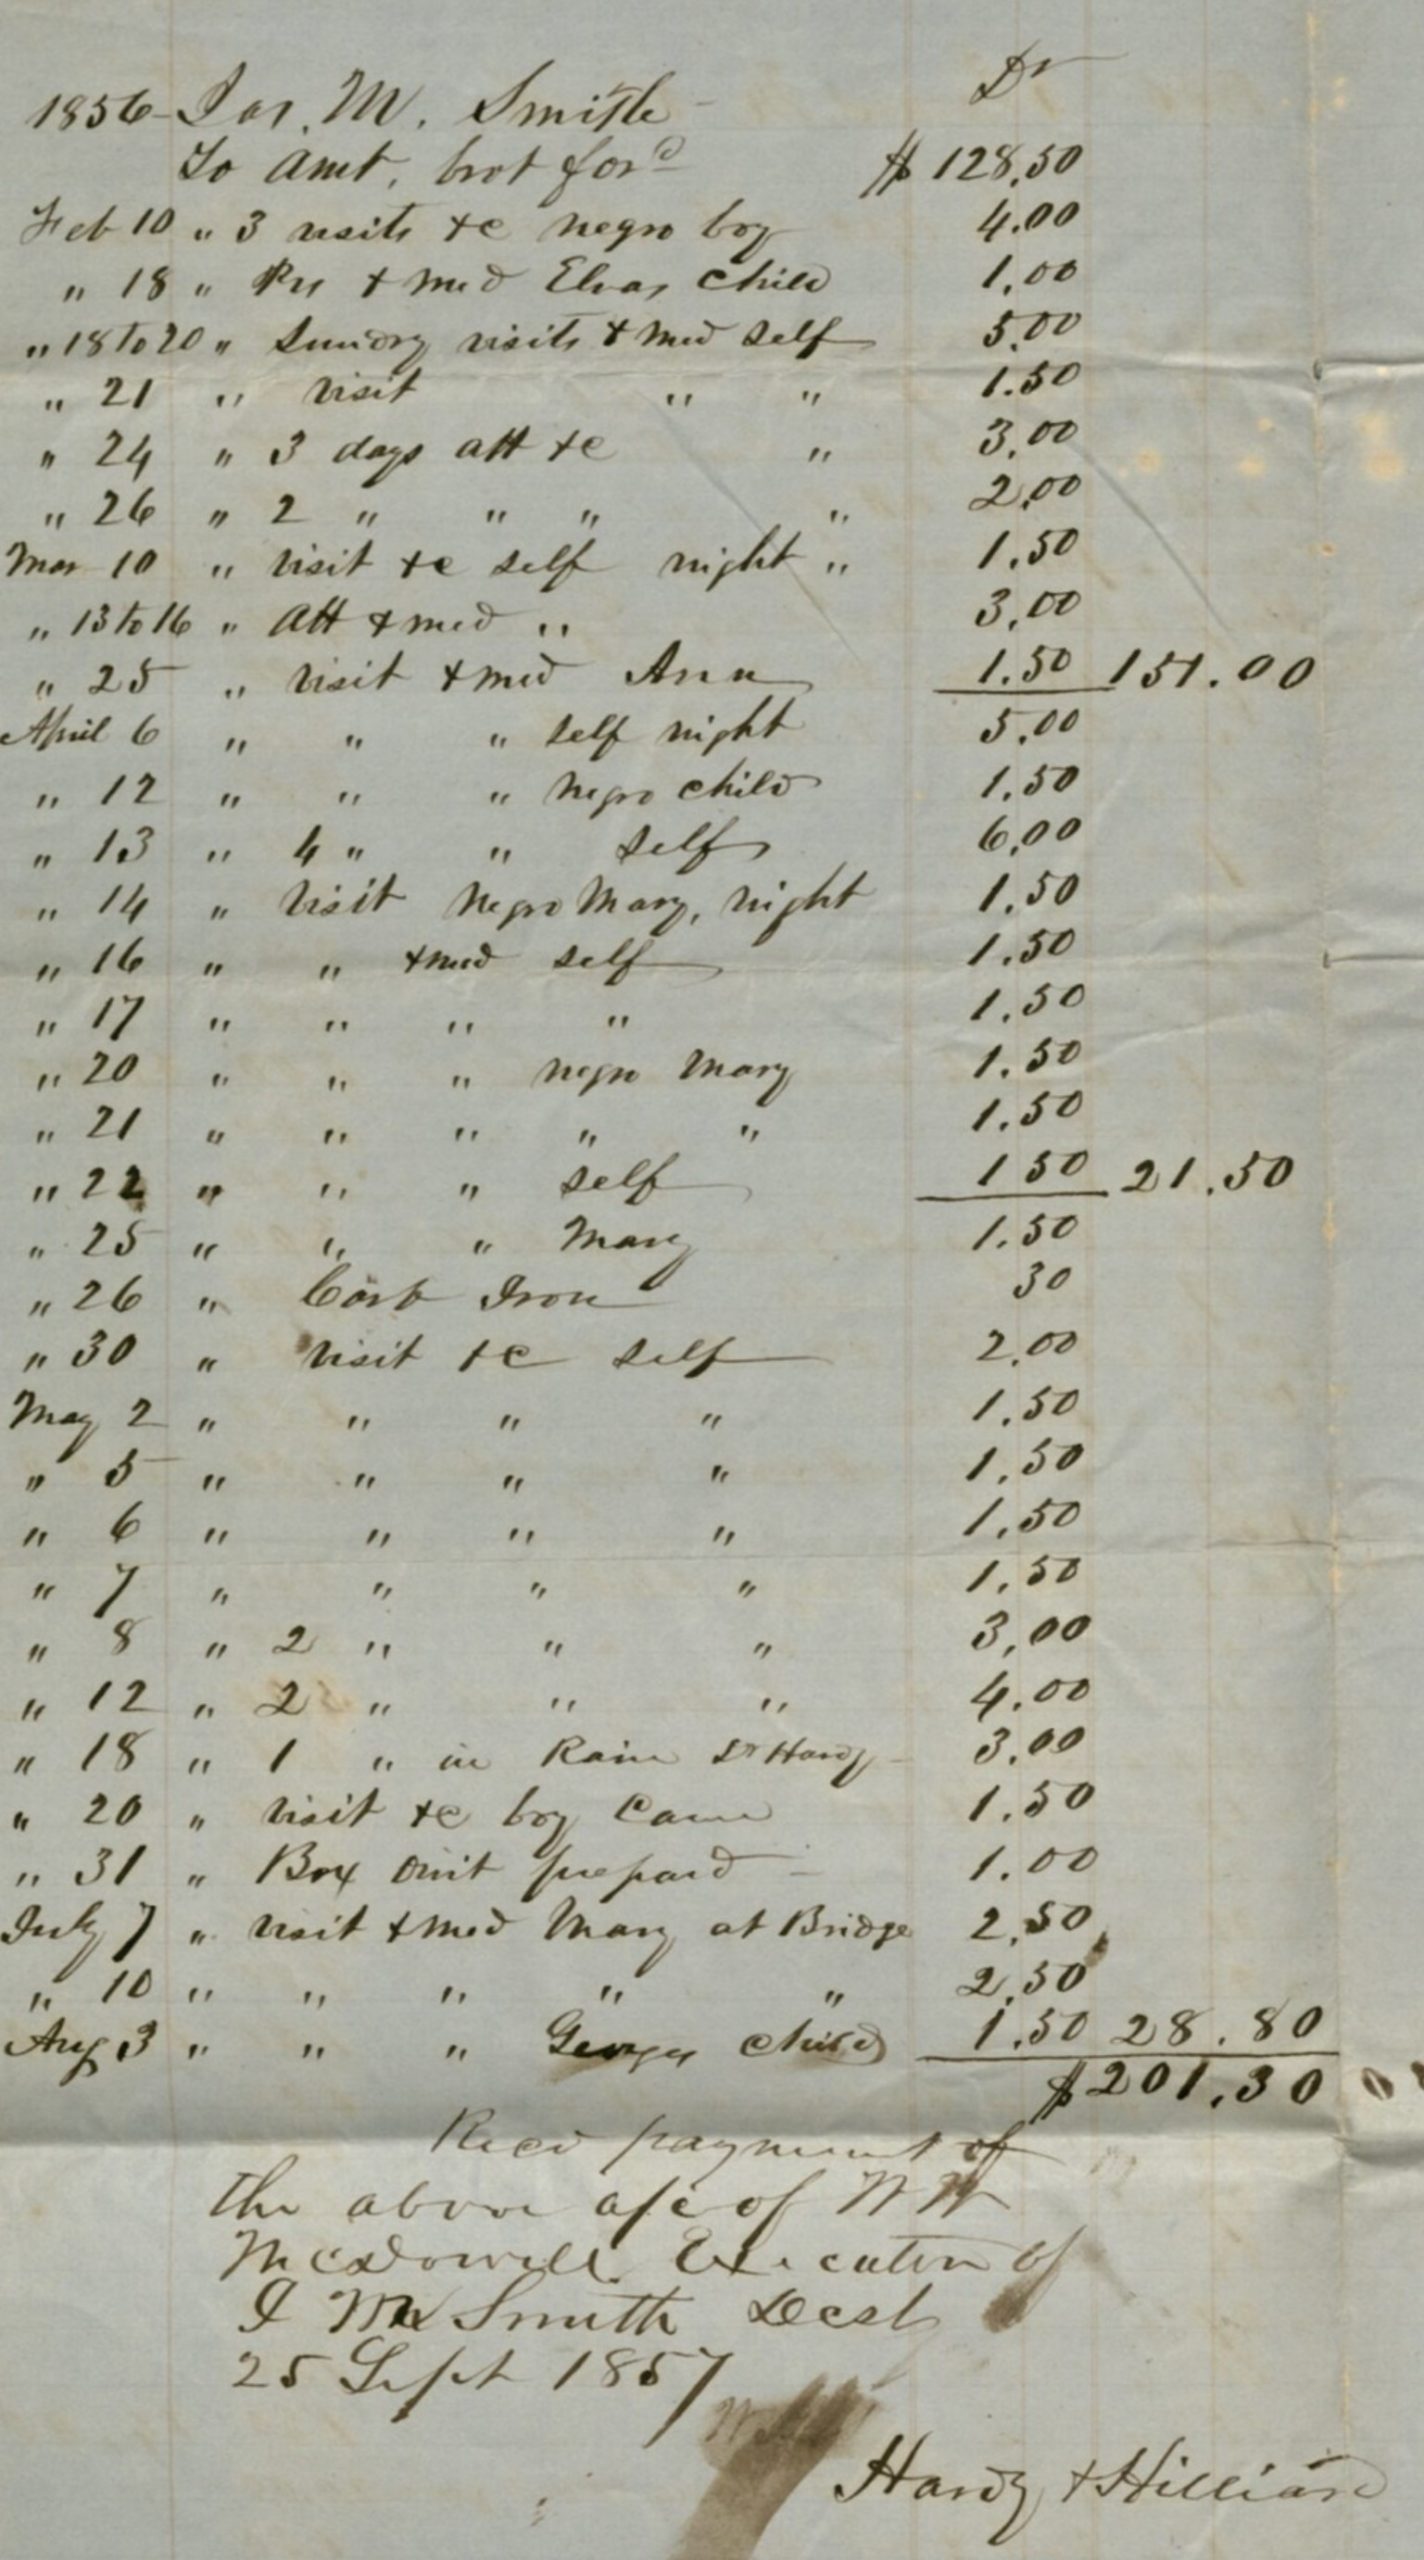 1856 Jas. M. Smith Dr
To Amt. brot ford $ 128.50
Feb 10 " 3 visits &c negro boy 4.00
" 18 " Prs & med Elvas child 1.00
" 18 to 20 " Sundry visits & med self 5.00
" 21 " visit " " 1.50
" 24 " 3 days att &c " 3.00
" 26 " 2 " " " " 2.00
Mar 10 " visit &c self night " 1.50
" 13 to 16 " Att & med " 3.00
" 25 " visit & med Ann 1.50 151.00
April 6 " " " self night 5.00
" 12 " " " negro child 1.50
" 13 " 4 " " self 6.00
" 14 " visit Negro Mary, night 1.50
" 16 " " & med self 1.50
" 17 " " " " 1.50
" 20 " " " negro Mary 1.50
" 21 " " " " " 1.50
" 22 " " " self 1 50 21.50
" 25 " " " Mary 1.50
" 26 " Carb Iron 30
" 30 " visit &c self 2.00
May 2 " " " " 1.50
" 5 " " " " 1.50
" 6 " " " " 1.50
" 7 " " " " 1.50
" 8 " 2 " " " 3.00
" 12 " 2 " " " 4.00
" 18 " 1 " in Rain Dr Hardy 3.00
" 20 " visit &c boy Cain 1.50
" 31 " Box oint prepard 1.00
July 7 " visit & med Mary at Bridge 2.50
" 10 " " " " " 2.50
Aug 3 " " " Georges child 1.50 28.80
$201.30
Recd payment of
the above a/c of W W
McDowell Executor of
J M Smith Decd
25 Sept 1857
Hardy & Hilliard